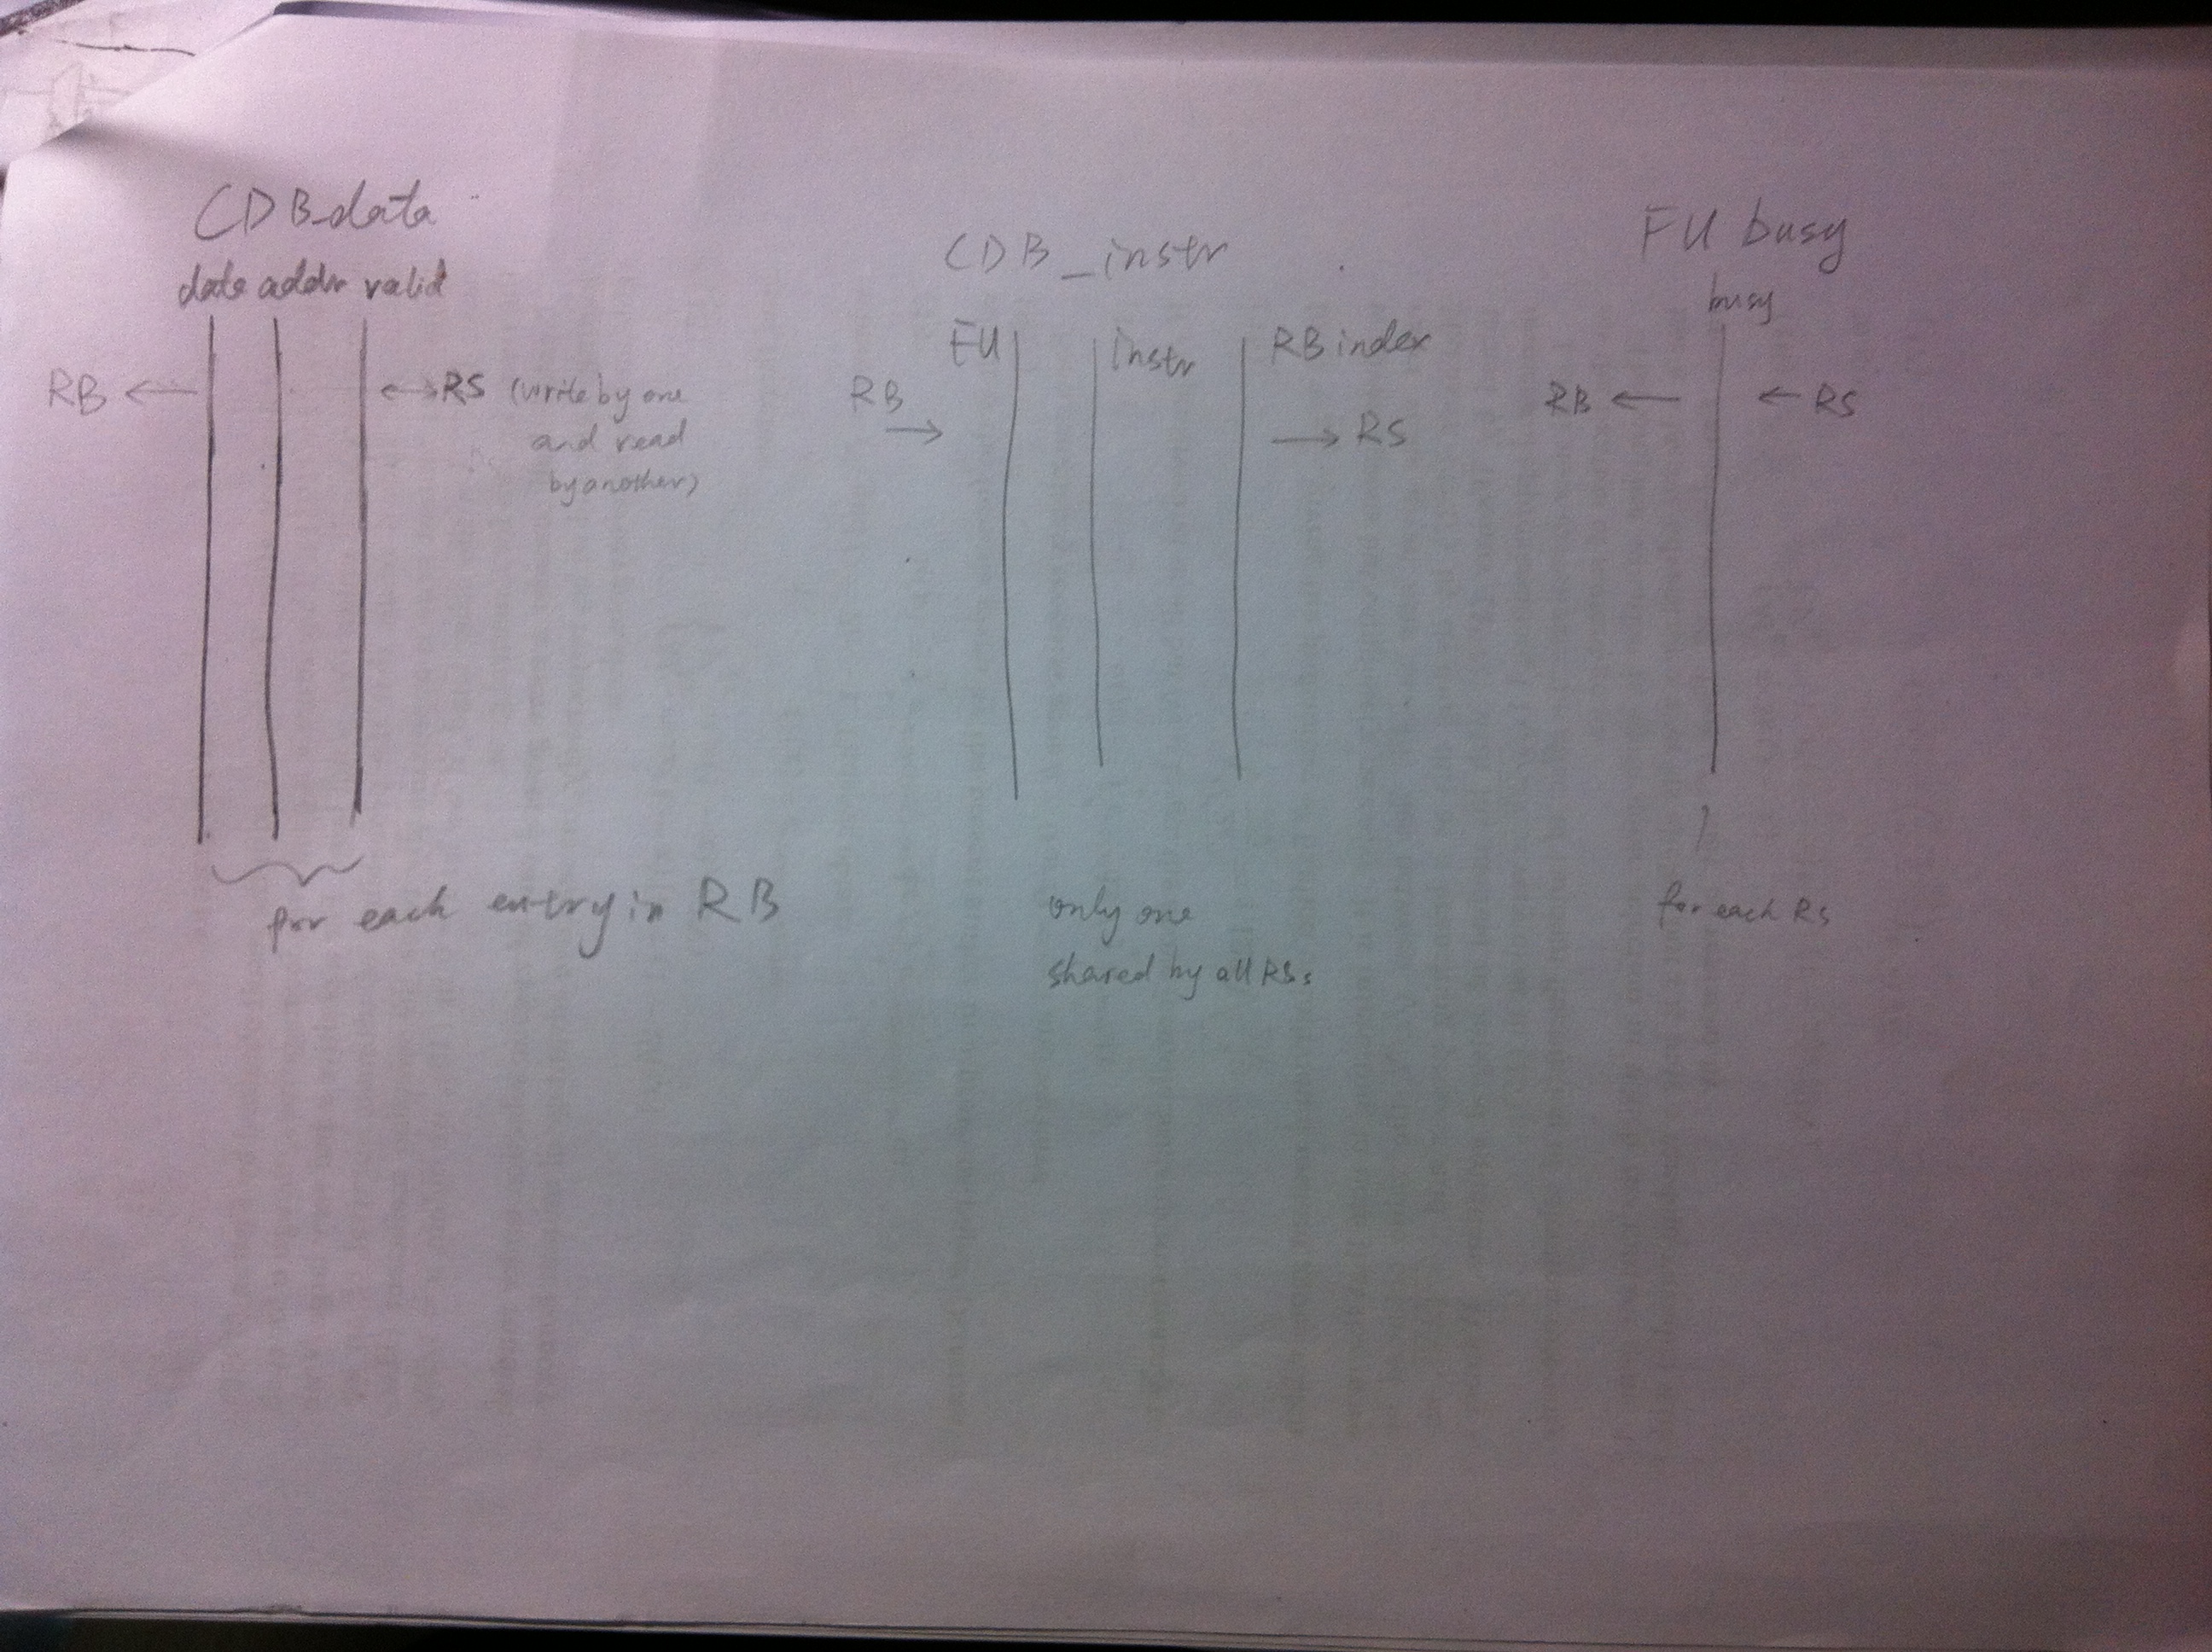 CDB_data
data addr valid
RB ← ↔ RS (write by one
and read
by another)
for each entry in RB
CDB_instr
FU instr RB index
RB → → RS
only one
shared by all RSs
FU busy
busy
RB ← ← RS
for each RS